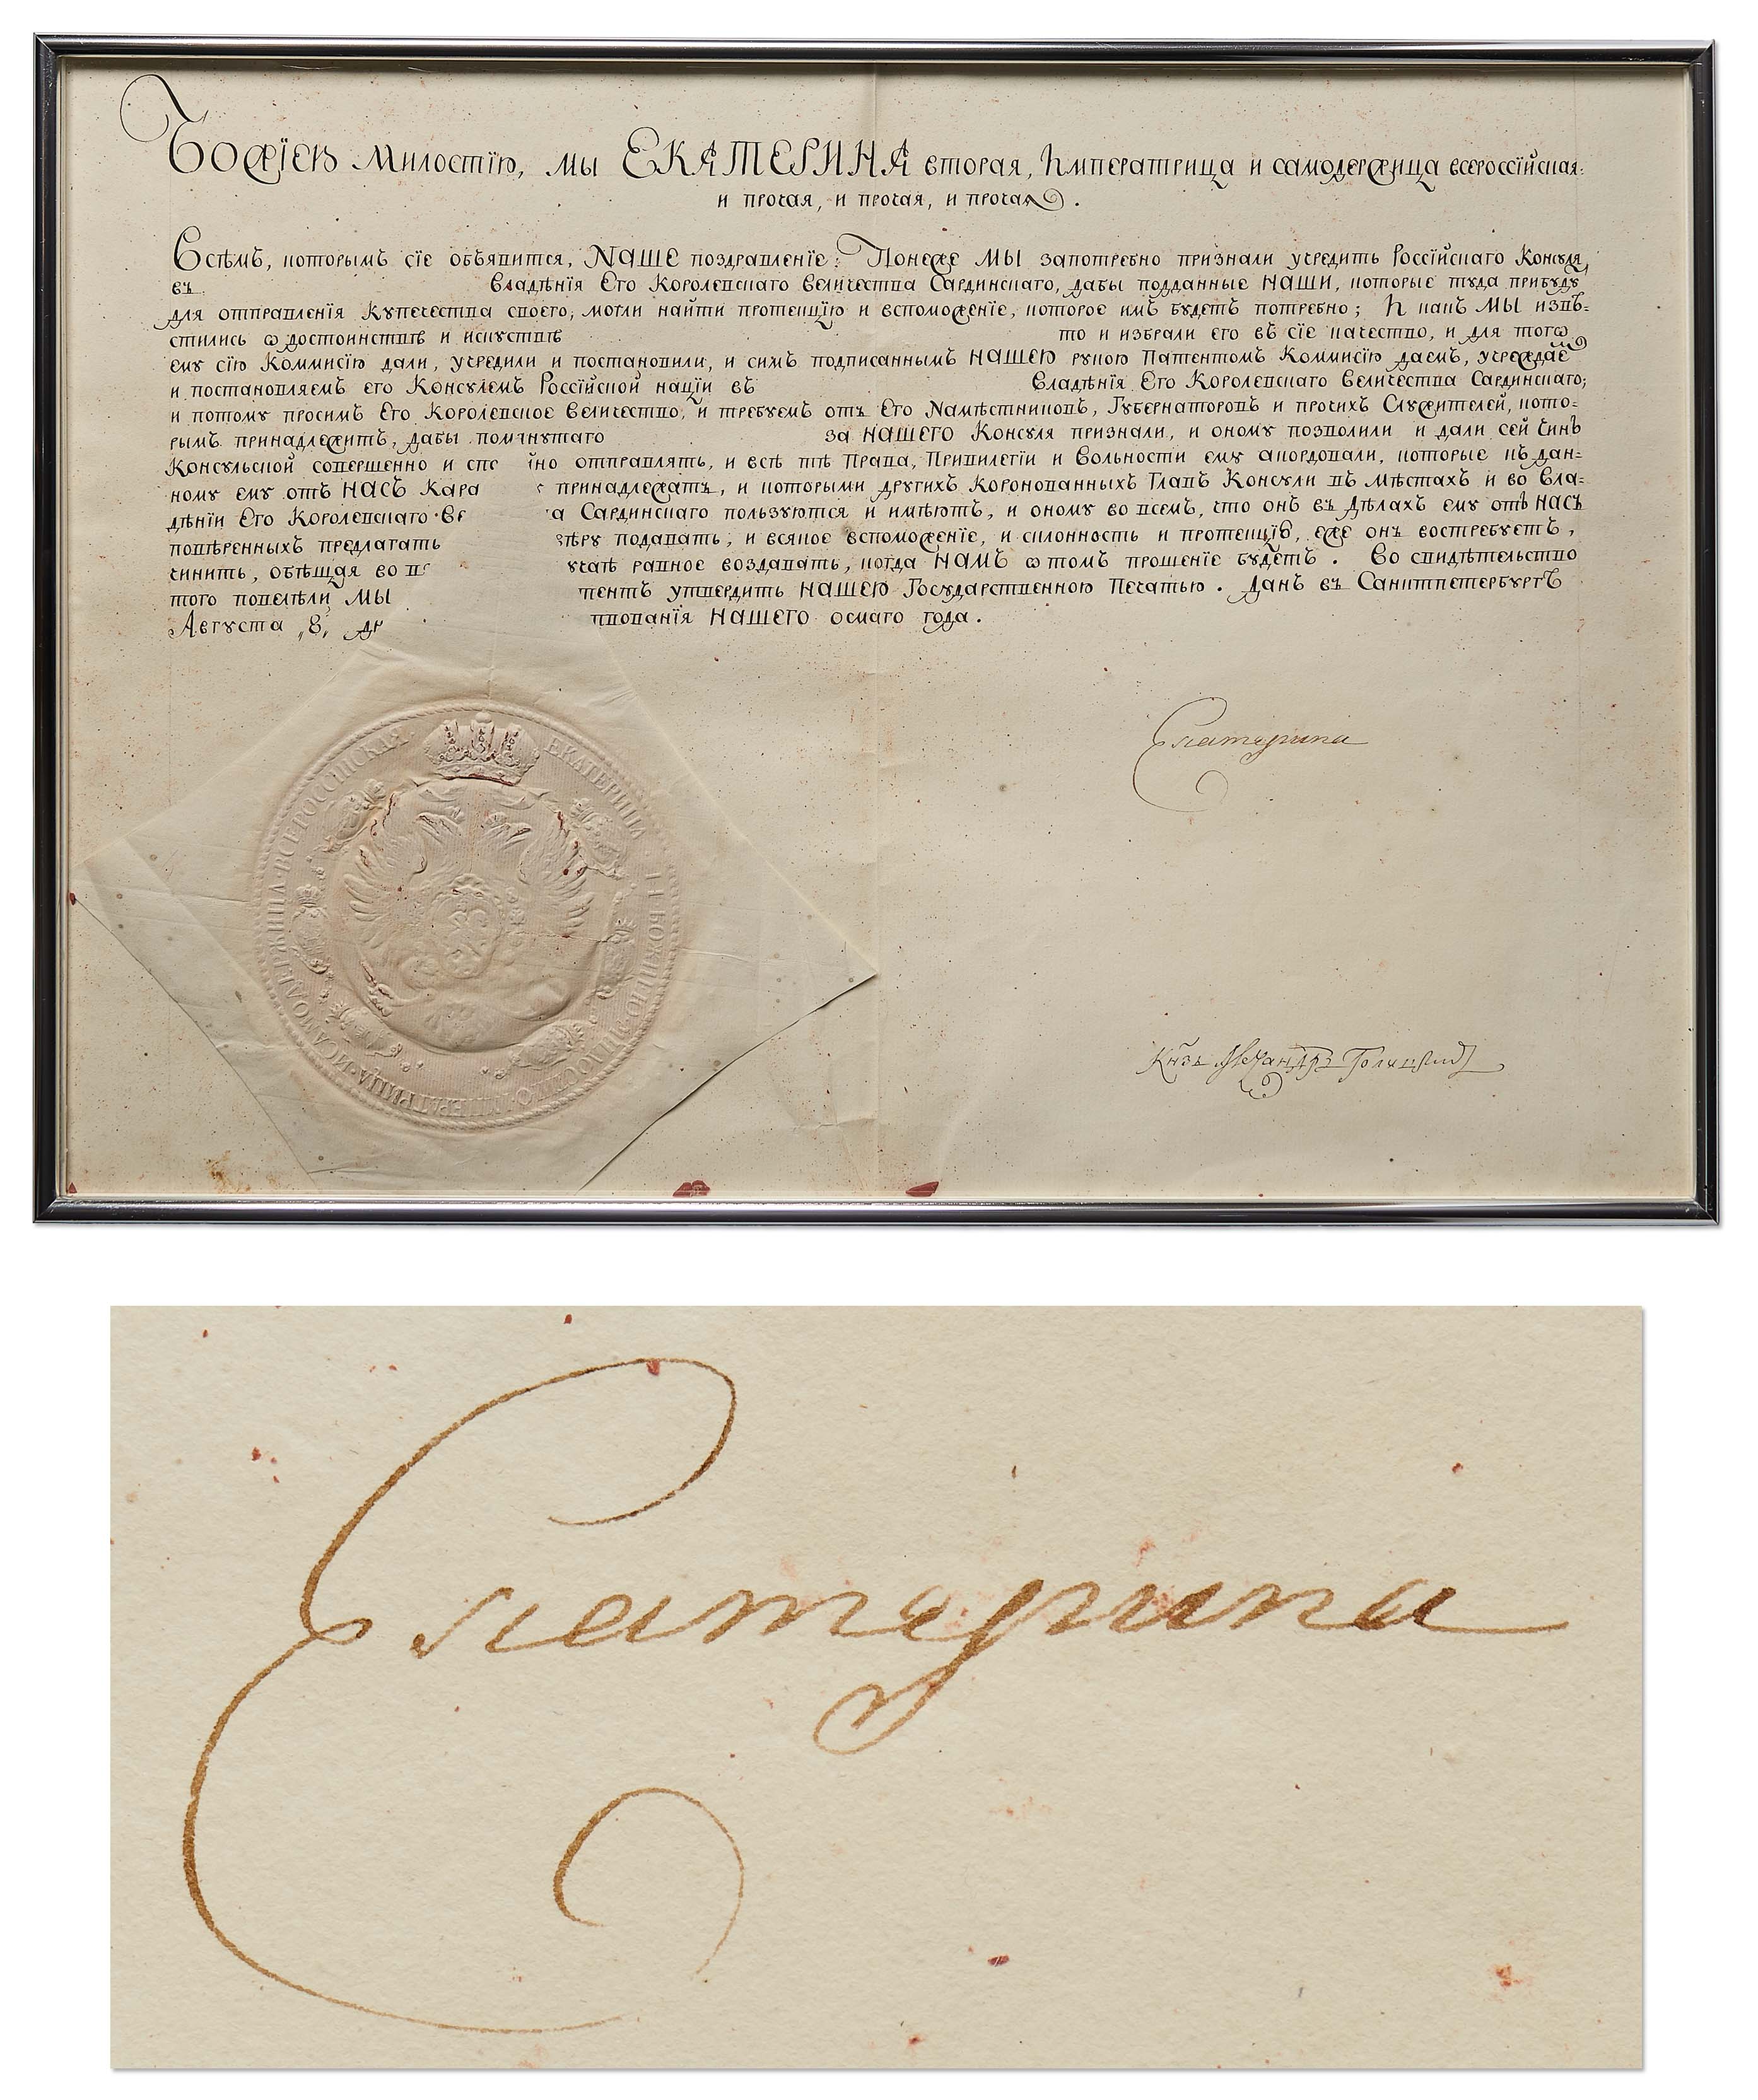 Божїею Милостїю, мы ЕКАТЕРИНА вторая, Императрица и самодержица всероссїйская:
и прочая, и прочая, и прочая.
Всѣмъ, которымъ сїе объявится, НАШЕ поздравленїе: Понеже МЫ запотребно признали учредить Россїйскаго Консула
въ Владѣнїя Его Королевскаго Величества Сардинскаго, дабы подданные НАШИ, которые туда прибудѫ
для отправленїя Купечества своего, могли найти протекцїю и вспоможенїе, которое имъ будетъ потребно; И какъ МЫ извѣ-
стились ѡ достоинствѣ и искуствѣ то и избрали его въ сїе качество, и для тогѡ
ему сїю Коммисїю дали, учредили и постановили, и симъ подписаннымъ НАШЕЮ рукою Патентомъ Коммисїю даемъ, учреждае
и постановляемъ его Консулемъ Россїйской нацїи въ Владѣнїя Его Королевскаго Величества Сардинскаго;
и потому просимъ Его Королевское Величество, и требуемъ отъ Его Намѣстниковъ, Губернаторовъ и прочихъ Служителей, кото-
рымъ принадлежитъ, дабы помянутаго за НАШЕГО Консуля признали, и оному позволили и дали сей Чинъ
Консульской совершенно и спо йно отправлять, и всѣ тѣ Права, Привилегїи и Вольности ему акордовали, которые къ дан-
ному ему отъ НАСЪ Кара принадлежатъ, и которыми другихъ Коронованныхъ Главъ Консули въ Мѣстахъ и во Вла-
дѣнїи Его Королевскаго Ве а Сардинскаго пользуются и имѣютъ, и оному во всемъ, что онъ въ Дѣлахъ ему отъ НАСЪ
повѣренныхъ предлагать вѣру подавать, и всякое вспоможенїе, и склонность и протекцїю, еже онъ востребуетъ,
чинить, обѣщая во вс учаѣ равное воздавать, когда НАМЪ ѡ томъ прошенїе будетъ. Во свидѣтельство
того повелѣли МЫ тентъ утвердить НАШЕЮ Государственною Печатью. Данъ въ Санктпетербургѣ
Августа „8„ дн твованїя НАШЕГО осмаго года.
ЕКАТЕРИНА II БОЖИЕЮ МИЛОСТИЮ ИМПЕРАТРИЦА И САМОДЕРЖИЦА ВСЕРОССИИСКАЯ
Екатерина
Князь Александръ Голицынъ
Екатерина